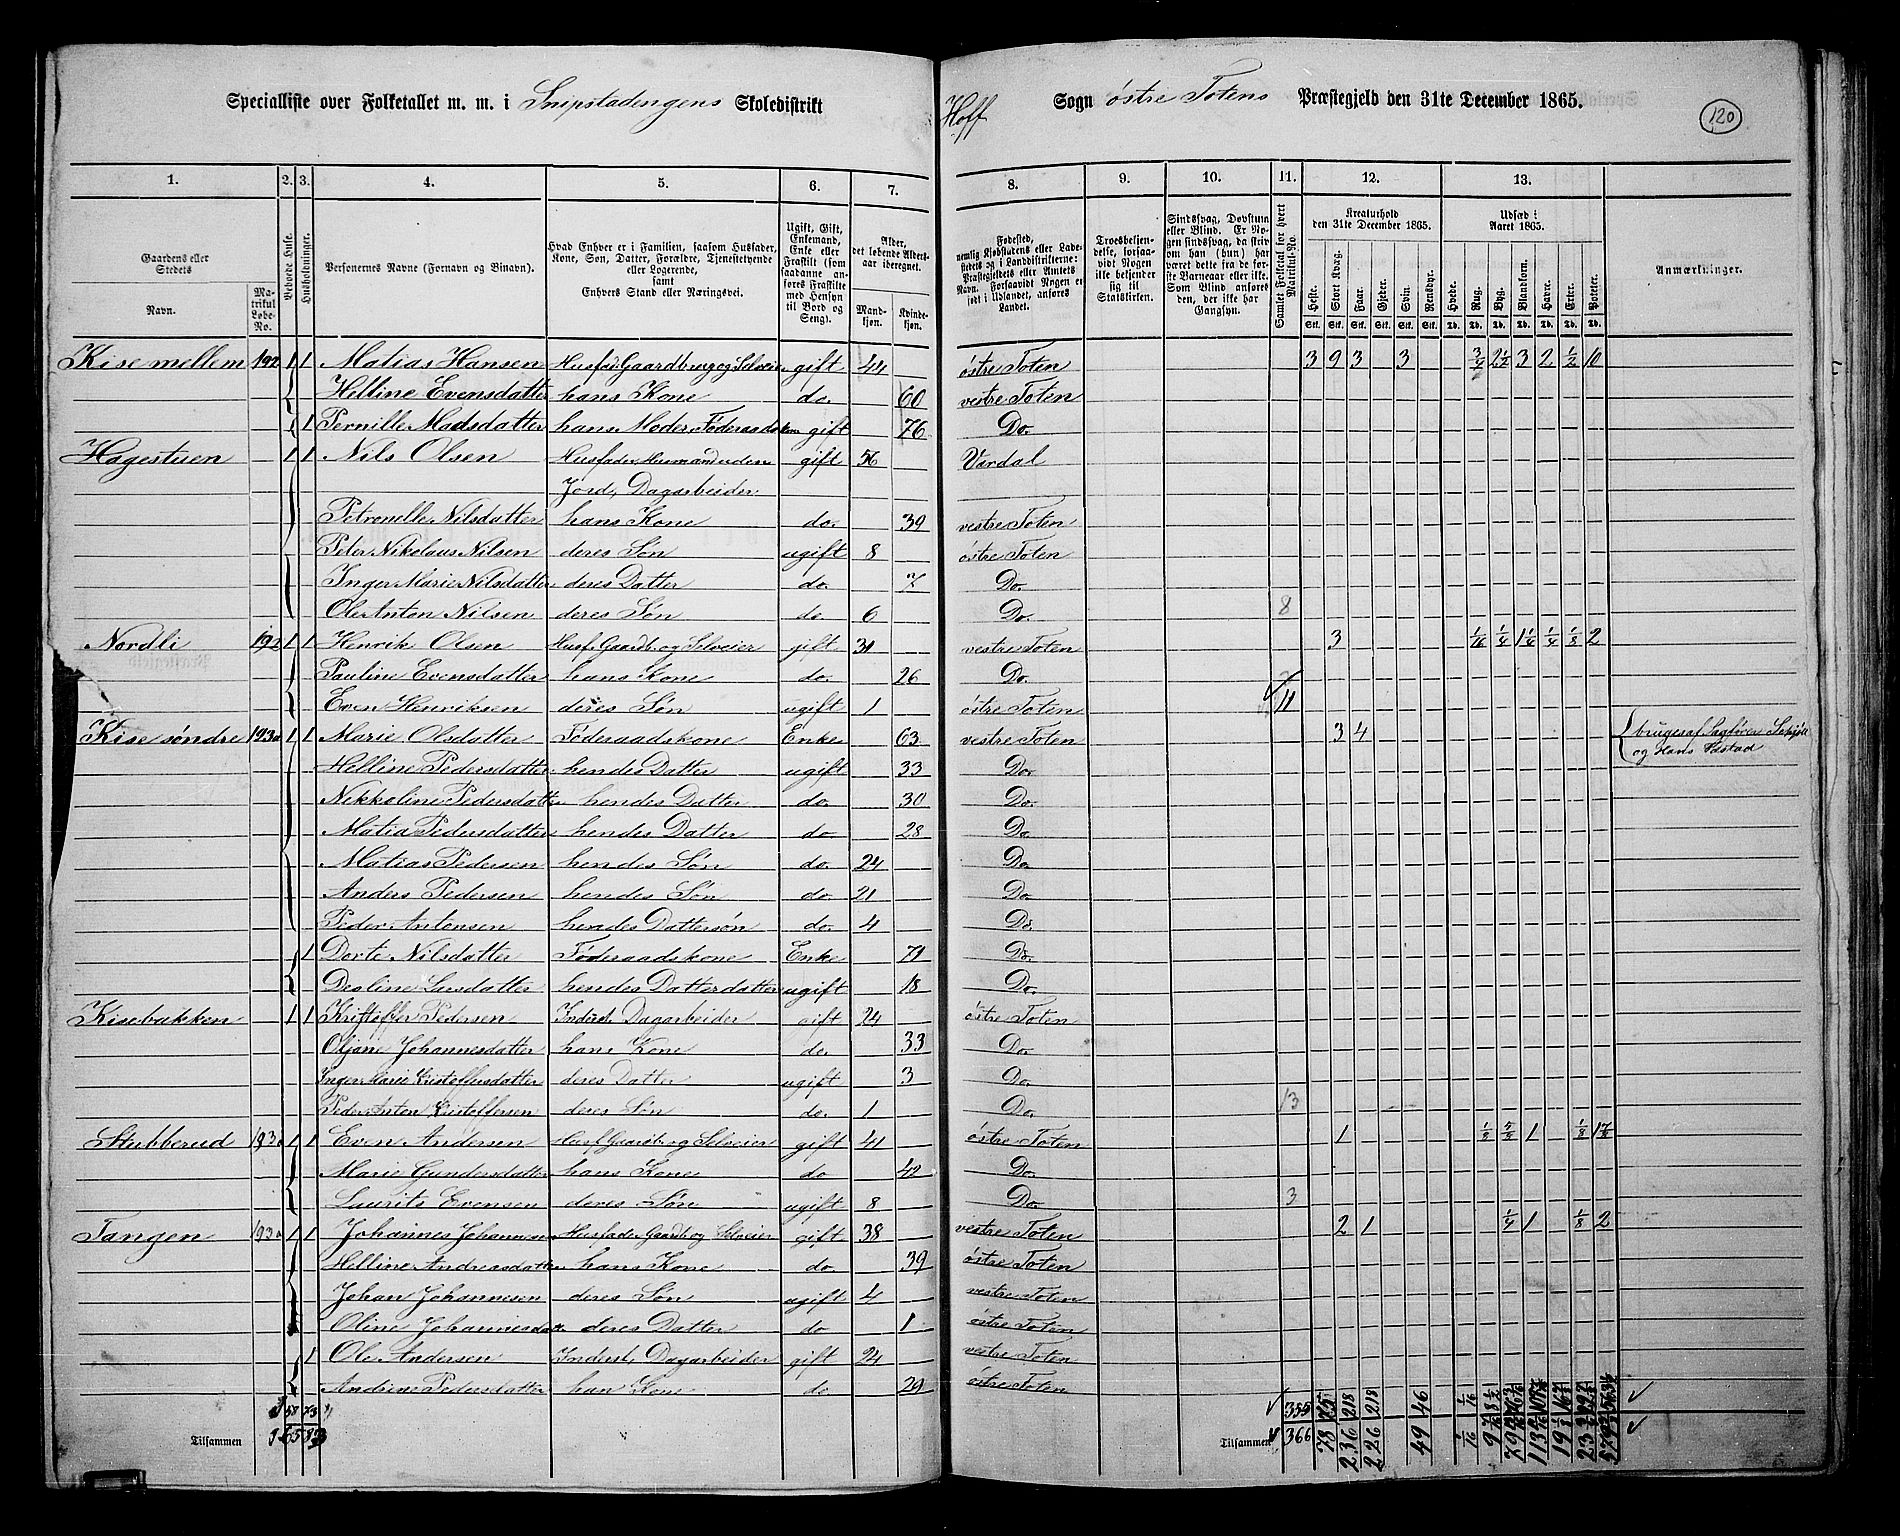 Specialliste over Folketallet m. m. i Snipstadengens Skoledistrikt
Hoff Sogn østre Totens Præstegjeld den 31te December 1865.
120
1. 2. 3. 4. 5. 6. 7. 8. 9. 10. 11. 12. 13.
Gaardens eller Stedets
Navn.
Matrikul Løbe-No.
Beboede Huse.
Husholdninger.
Personernes Navne (Fornavn og Binavn).
Hvad Enhver er i Familien, saasom Husfader, Kone, Søn, Datter, Forældre, Tjenestetyende eller Logerende, samt Enhvers Stand eller Næringsvei.
Ugift, Gift, Enkemand, Enke eller Fraskilt (som saadanne anføres Fraskilte med Hensyn til Bord og Seng).
Alder, det løbende Aldersaar iberegnet.
Mandkjøn. Kvindekjøn.
Fødested, nemlig Kjøbstadens eller Ladestedets eller i Landdistrikterne: Præstegjeldets eller Amtets Navn. Forsaavidt Nogen er født i Udlandet, anføres Landet.
Troesbekjendelse, forsaavidt Nogen ikke bekjender sig til Statskirken.
Sindssvag, Døvstum eller Blind. Er Nogen sindssvag, da skrives om han (hun) har været dette fra de første Barneaar eller ikke. Som Blind anføres den, der ikke har Gangsyn.
Samlet Folketal for hvert Matrikul-No.
Kreaturhold den 31te December 1865.
Heste. Stort Kvæg. Faar. Gjeder. Svin. Rensdyr.
Udsæd i Aaret 1865.
Hvede. Rug. Byg. Blandkorn. Havre. Erter. Poteter.
Anmærkninger.
Kise mellem 192 1 1 Matias Hansen Husfad. Gaardbrug og Selveier gift 44 østre Toten 3 9 3 3 3/4 2 1/2 3 2 1/2 10
Helline Evensdatter hans Kone do. 60 vestre Toten
1 Pernille Madsdatter hans Moder Føderaadskone gift 76 Do.
Hagestuen 1 1 Nils Olsen Husfader Husmand uden gift 56 Vardal
Jord, Dagarbeider
Petronelle Nilsdatter hans Kone do. 39 vestre Toten
Peter Nikolaus Nilsen deres Søn ugift 8 østre Toten
Inger Marie Nilsdatter deres Datter do. 7 Do.
Ole Anton Nilsen deres Søn do. 6 Do. 8
Nordli 192 1 1 Henrik Olsen Husf. Gaardb. og Selveier gift 31 vestre Toten 3 1/16 1/4 1 1/4 1/4 1/8 2
Pauline Evensdatter hans Kone do. 26 Do.
Even Henriksen deres Søn ugift 1 østre Toten 11
Kise søndre 193a 1 1 Marie Olsdatter Føderaadskone Enke 63 vestre Toten 3 4 bruges af Sagfører
Helline Pedersdatter hendes Datter ugift 33 Do. og Hans
Nikkoline Pedersdatter hendes Datter do. 30 Do.
Matia Pedersdatter hendes Datter do 28 Do
Matias Pedersen hendes Søn do. 24 Do.
Anders Pedersen hendes Søn do. 21 Do.
Peder Antonsen hendes Dattersøn do. 4 Do.
1 Dorte Nilsdatter Føderaadskone Enke 71 Do.
Larsdatter hendes Datterdatter ugift 18 Do.
Kisebakken 1 1 Kristoffer Pedersen Inderst, Dagarbeider gift 24 østre Toten
Oljane Johannesdatter hans Kone do. 33 Do.
Inger Marie Kristoffersdatter deres Datter ugift 3 Do.
Peder Anton Kristoffersen deres Søn do. 1 Do. 13
Stubberud 193a 1 1 Even Andersen Husf. Gaardb. og Selveier gift 41 østre Toten 1 1 1/8
Marie Gundersdatter hans Kone do 42 Do.
Laurits Evensen deres Søn ugift 8 Do. 3
Tangen 193a 1 1 Johannes Johannesen Husfader Gaardb. og Selveier gift 38 vestre Toten 2 1 1/4 1 1/8 2
Helline Andreasdatter hans Kone do. 39 østre Toten
Johan Johannesen deres Søn ugift 4 vestre Toten
Oline Johannesdatter deres Datter do 1 østre Toten
1 Ole Andersen Inderst, Dagarbeider gift 24 vestre Toten
Andrine Pedersdatter han Kone do 29 østre Toten
58 73 355 218 218 46
Tilsammen Tilsammen 366 78 236 226 49